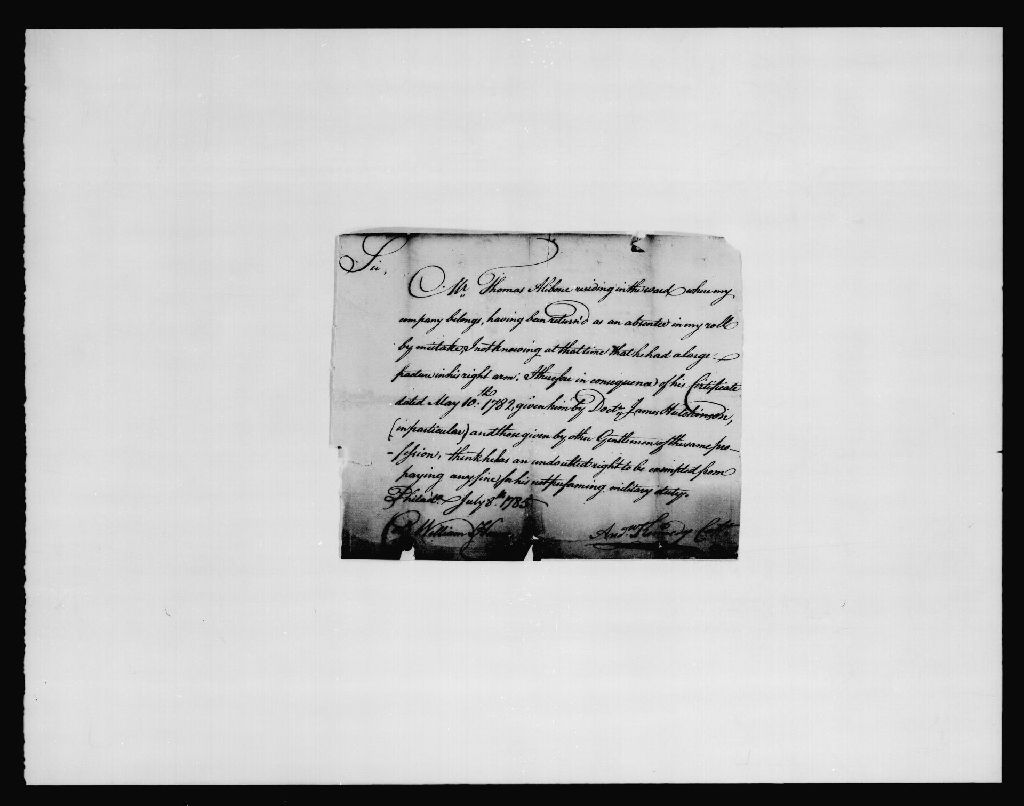 Sir,
Mr. Thomas Alibone residing in the ward where my
company belongs, having been return'd as an absentee in my roll
by mistake, I not knowing at that time that he had a large
fracture in his right arm. I therefore in consequence of his Certificate
dated May 10th. 1782, given him by Doctr. James Hutchinson,
(in particular) and those given by other Gentlemen of the same pro-
-fession, think he has an undoubted right to be exempted from
paying any fine for his not performing military duty.
Philada. July 8th 1785
William Andw. Kennedy Capt